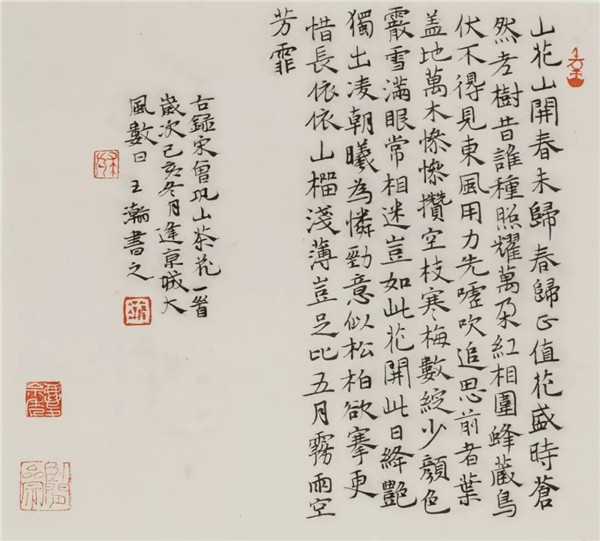 山花山開春未歸春歸正值花盛時蒼
然老樹昔誰種照耀萬朵紅相圍蜂藏鳥
伏不得見東風用力先噓吹追思前者葉
盖地萬木慘慘攢空枝寒梅數綻少顏色
霰雪滿眼常相迷豈如此花開此日絳艷
獨出凌朝曦為憐勁意似松柏欲搴更
惜長依依山榴淺薄豈足比五月霧雨空
芳霏
右錄宋曾巩山茶花一首
歲次己亥冬月逢京城大
風數日王瀚書之